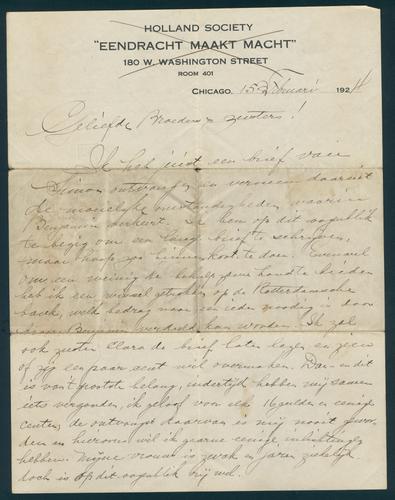 HOLLAND SOCIETY
"EENDRACHT MAAKT MACHT"
180 W. WASHINGTON STREET
ROOM 401
CHICAGO, 15 Februari 1924
Geliefde Broeders & zusters!
Ik heb juist een brief van
Simon ontvangen en verneem daaruit
de moeielijke omstandigheden waarin
Benjamin verkeert. Ik ben op dit oogenblik
te bezig om een lang brief te schrijven,
maar hoop zo binnen kort te doen. Evenwel
om een weinig de behulpzame hand te bieden
heb ik een wissel getrokken op de Rotterdamsche
bank, welk bedrag naar een ieder noodig is door
Benjamin verdeeld kan worden. Ik zal
ook zuster Clara de brief laten lezen en zien
of zij een paar cent wil overmaken. Dan en dit
is van grootste belang, indertijd hebben wij samen
iets vergonden, ik geloof voor elk 16 gulden en eenige
centen, de ontvangst daarvan is mij nooit gewor-
den en hierover wil ik gaarne eenige inlichtingen
hebben. Mijne vrouw is zwak en jaren ziekelijk
doch is op dit oogenblik vrij wel.